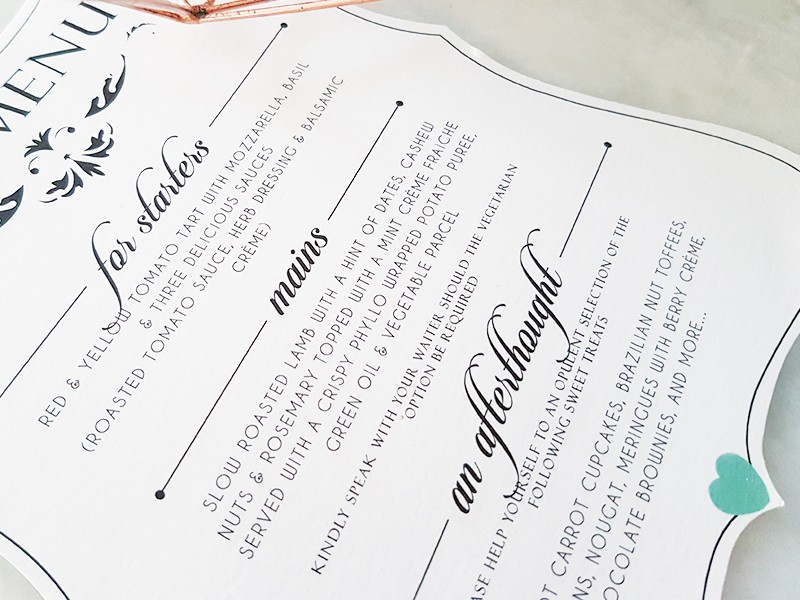 MENU
for starters
RED & YELLOW TOMATO TART WITH MOZZARELLA, BASIL
& THREE DELICIOUS SAUCES
(ROASTED TOMATO SAUCE, HERB DRESSING & BALSAMIC
CRÈME)
mains
SLOW ROASTED LAMB WITH A HINT OF DATES, CASHEW
NUTS & ROSEMARY TOPPED WITH A MINT CRÈME FRAICHE
SERVED WITH A CRISPY PHYLLO WRAPPED POTATO PUREE,
GREEN OIL & VEGETABLE PARCEL
KINDLY SPEAK WITH YOUR WAITER SHOULD THE VEGETARIAN
OPTION BE REQUIRED
an afterthought
HELP YOURSELF TO AN OPULENT SELECTION OF THE
FOLLOWING SWEET TREATS
CARROT CUPCAKES, BRAZILIAN NUT TOFFEES,
NOUGAT, MERINGUES WITH BERRY CRÈME,
BROWNIES, AND MORE...